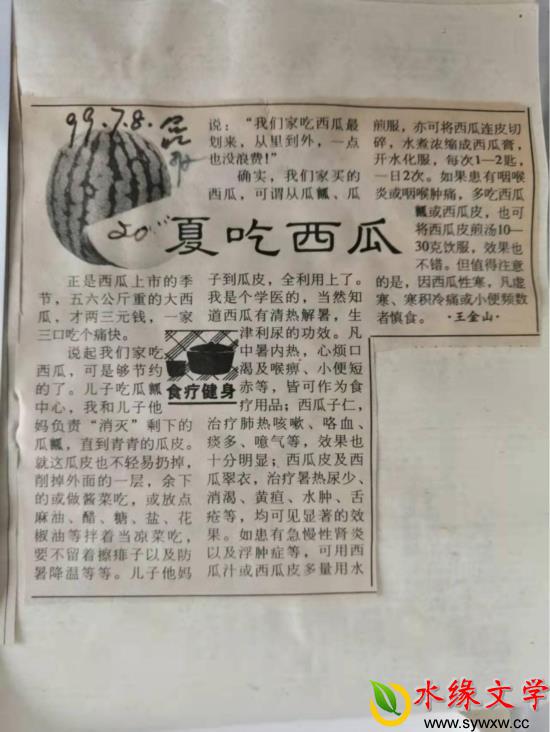 99.7.8.
夏吃西瓜
正是西瓜上市的季
节，五六公斤重的大西
瓜，才两三元钱，一家
三口吃个痛快。
说起我们家吃
西瓜，可是够节约
的了。儿子吃瓜瓤
中心，我和儿子他
妈负责“消灭”剩下的
瓜瓤，直到青青的瓜皮。
就这瓜皮也不轻易扔掉，
削掉外面的一层，余下
的或做酱菜吃，或放点
麻油、醋、糖、盐、花
椒油等拌着当凉菜吃，
要不留着擦痱子以及防
暑降温等等。儿子他妈
说：“我们家吃西瓜最
划来，从里到外，一点
也没浪费！”
确实，我们家买的
西瓜，可谓从瓜瓤、瓜
子到瓜皮，全利用上了。
我是个学医的，当然知
道西瓜有清热解暑，生
津利尿的功效。凡
中暑内热，心烦口
渴及喉痹、小便短
赤等，皆可作为食
疗用品；西瓜子仁，
治疗肺热咳嗽、咯血、
痰多、噫气等，效果也
十分明显；西瓜皮及西
瓜翠衣，治疗暑热尿少、
消渴、黄疸、水肿、舌
疮等，均可见显著的效
果。如患有急慢性肾炎
以及浮肿症等，可用西
瓜汁或西瓜皮多量用水
煎服，亦可将西瓜连皮切
碎，水煮浓缩成西瓜膏，
开水化服，每次1—2匙，
一日2次。如果患有咽喉
炎或咽喉肿痛，多吃西瓜
瓤或西瓜皮，也可
将西瓜皮煎汤10—
30克饮服，效果也
不错。但值得注意
的是，因西瓜性寒，凡虚
寒、寒积冷痛或小便频数
者慎食。·王金山·
食疗健身
水缘文学
www.sywxw.cc